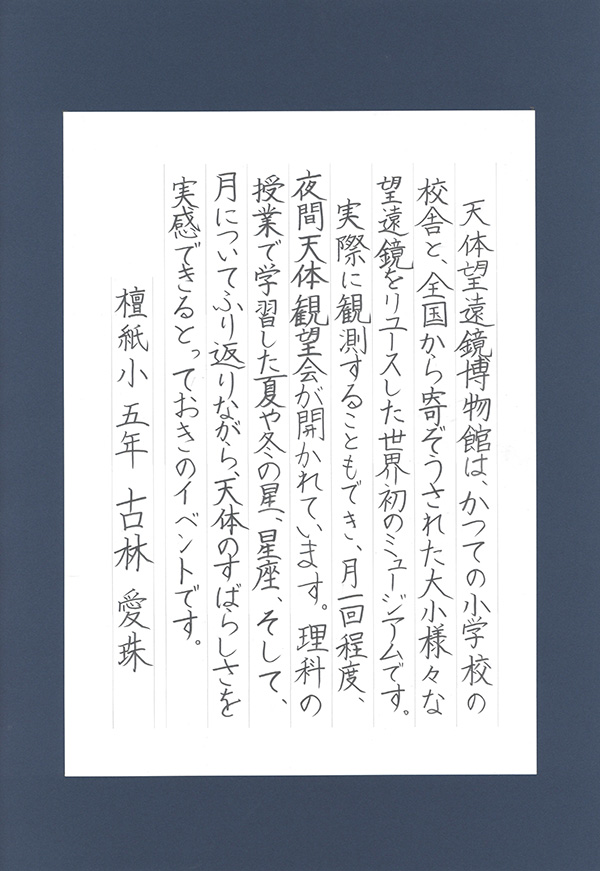 天体望遠鏡博物館は、かつての小学校の
校舎と、全国から寄ぞうされた大小様々な
望遠鏡をリユースした世界初のミュージアムです。
実際に観測することもでき、月一回程度、
夜間天体観望会が開かれています。理科の
授業で学習した夏や冬の星、星座、そして、
月についてふり返りながら、天体のすばらしさを
実感できるとっておきのイベントです。
檀紙小 五年 古林 愛珠